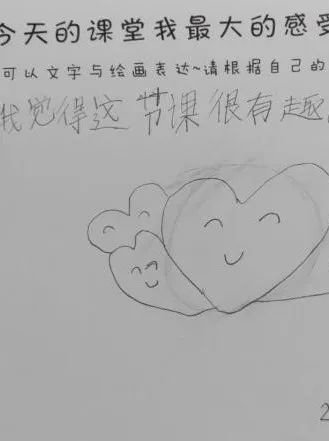 今天的课堂我最大的感受
可以文字与绘画表达~请根据自己的
我觉得这节课很有趣
2